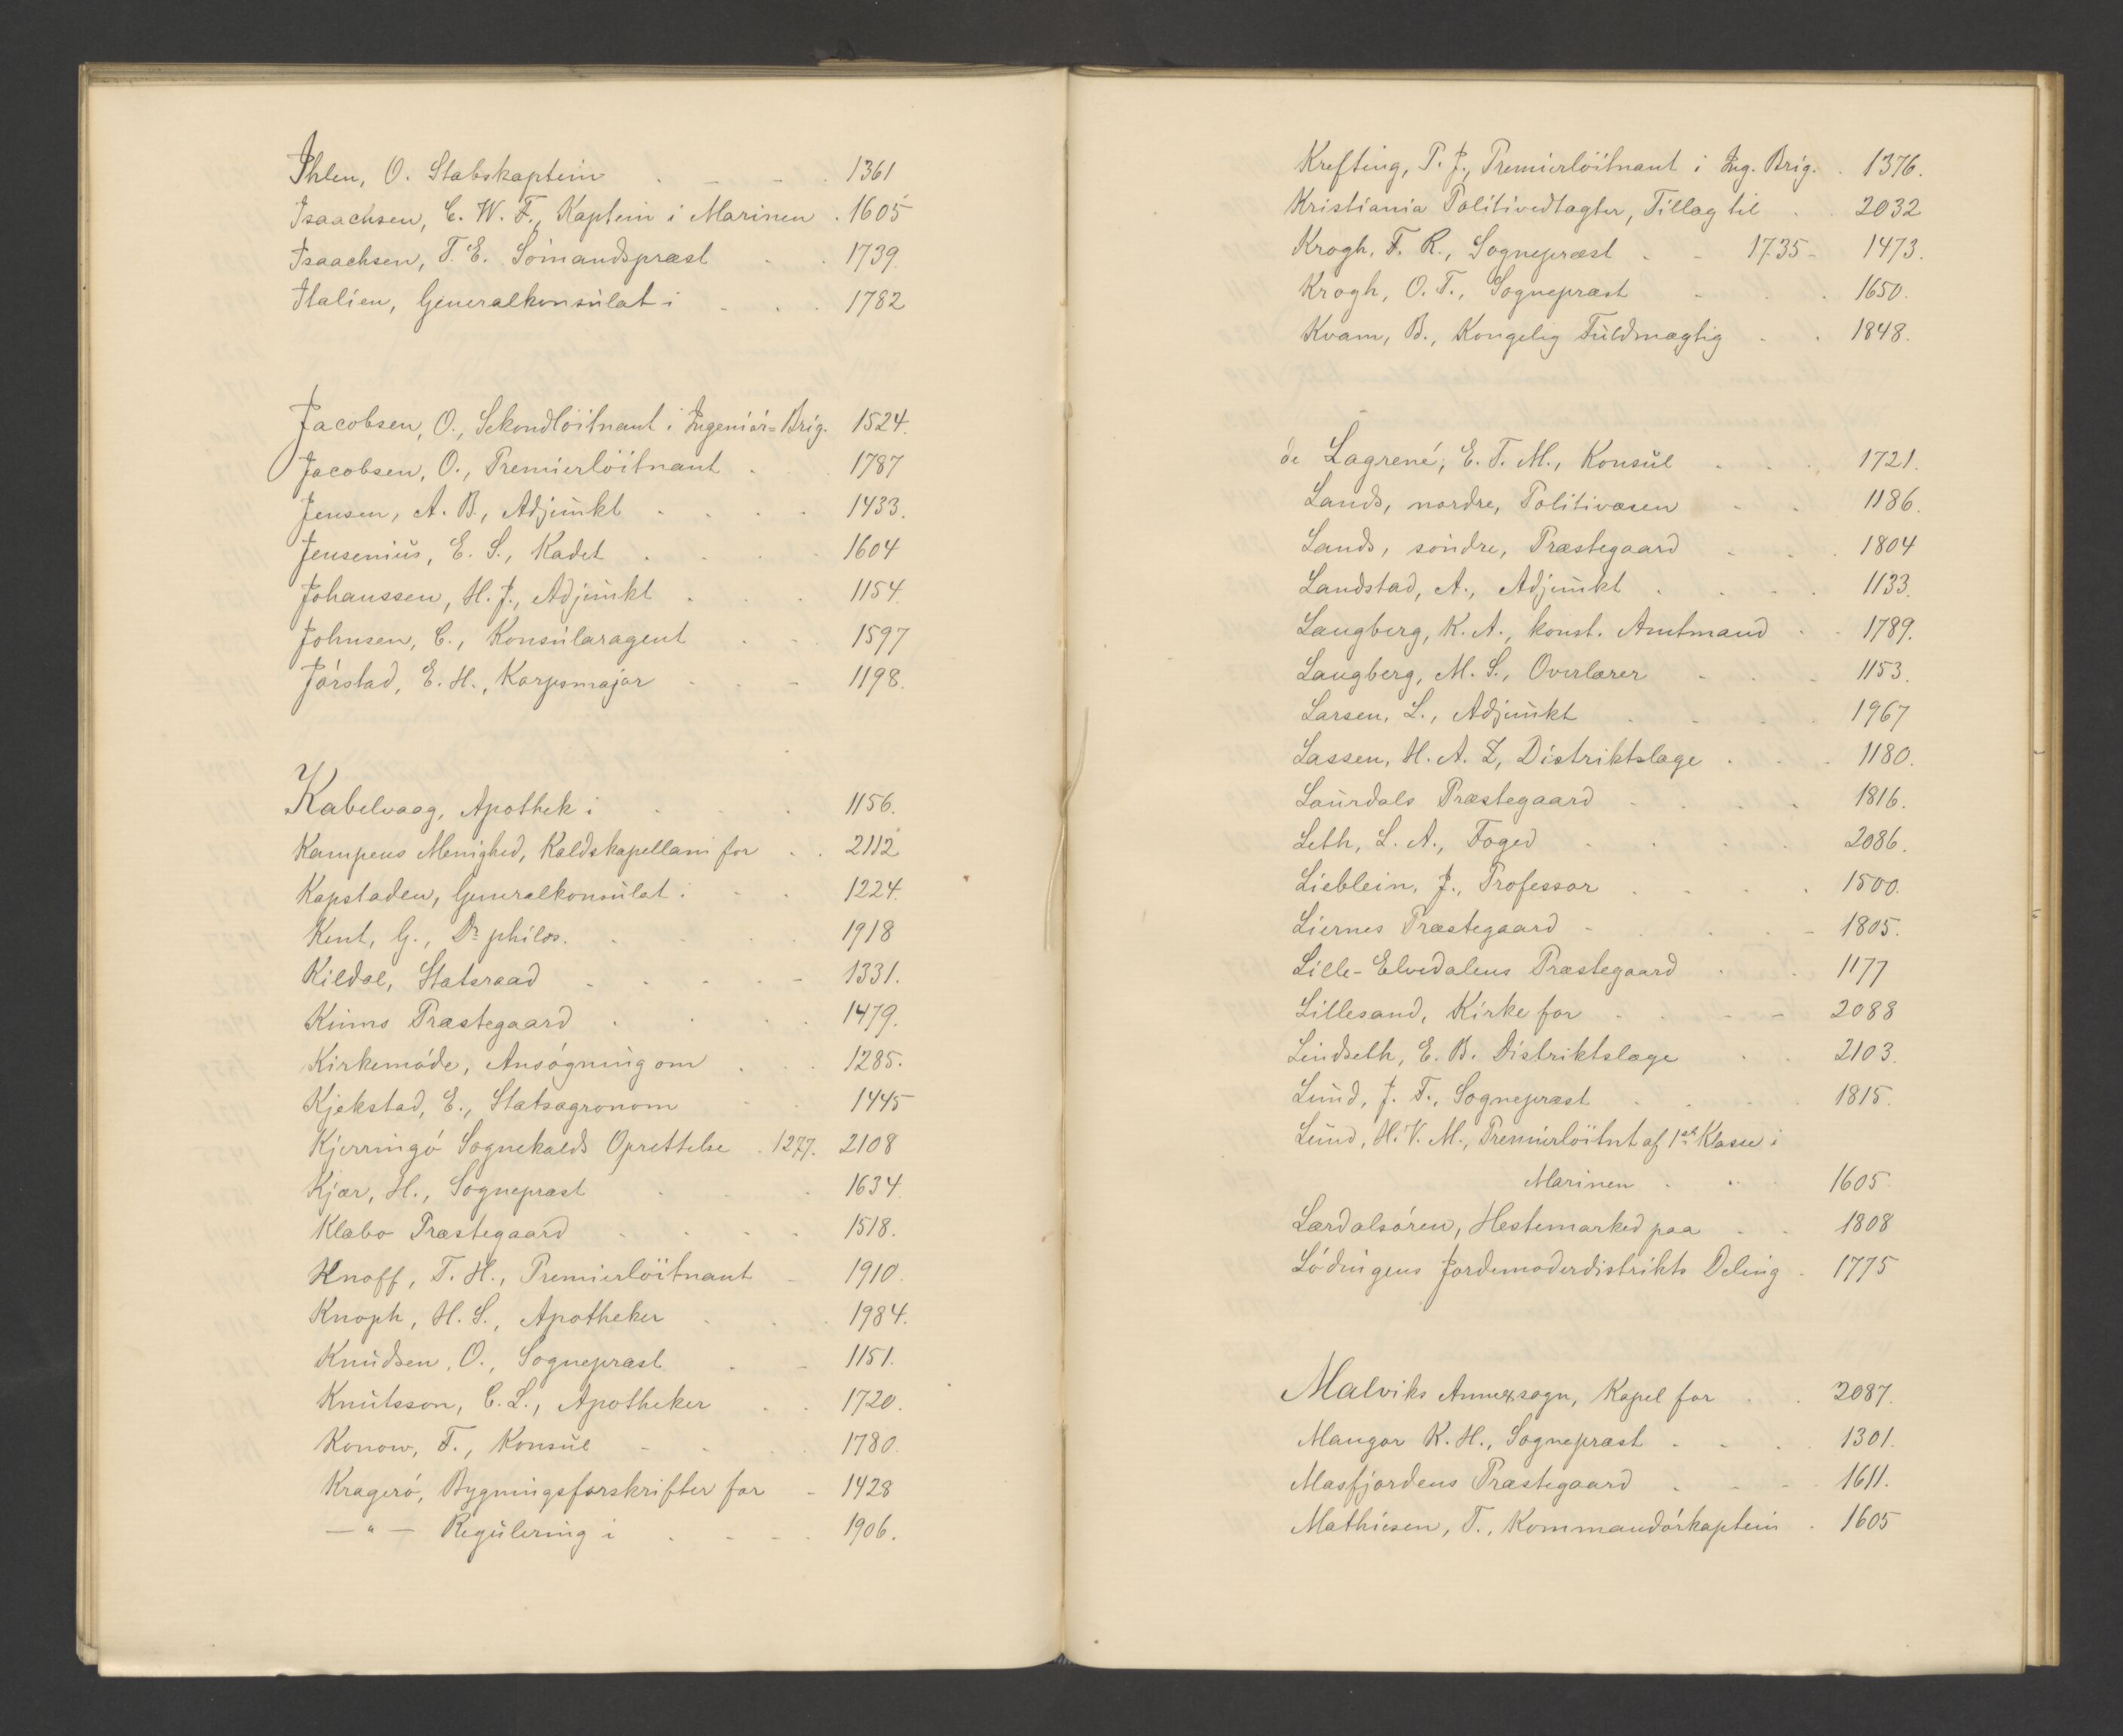 Ihlen, O. Stabskaptein . – – . 1361
Isaachsen, C. W. F., Kaptein i Marinen . 1605
Isaachsen, T. E. Sömandspræst . . 1739
Italien, Generalkonsulat i . . . 1782
Jacobsen, O., Sekondlöitnant i Ingeniör=Brig. 1524.
Jacobsen, O., Premierlöitnant . . 1787
Jensen, A. B., Adjunkt . . . . 1433.
Jensenius, E. S., Kadet . . . . 1604
Johanssen, H. J., Adjunkt . . . 1154.
Johnsen, C., Konsularagent . . 1597
Jörstad, E. H., Korpsmajor . . – 1198.
Kabelvaag, Apothek i . . . 1156.
Kampens Menighed, Kaldskapellani for . . 2112
Kapstaden, Generalkonsulat i . . 1224.
Kent, G., Dr philos. . . . . 1918
Kildal, Statsraad . . . . – 1331.
Kinns Præstegaard . . . . 1479.
Kirkemöde, Ansögning om . . . 1285.
Kjekstad, E., Statsagronom . . 1445
Kjerringö Sognekalds Oprettelse . 1277. 2108
Kjær, H., Sognepræst . . . 1634.
Klæbo Præstegaard . . . . 1518.
Knoff, T. H., Premierlöitnant – 1910.
Knoph, H. S., Apotheker . . . 1984.
Knudsen, O., Sognepræst . – 1151.
Knutsson, C. L., Apotheker . . 1720.
Konow, F., Konsul – . . . 1780.
Kragerö, Bygningsforskrifter for – 1428
— " — Regulering i . . – . 1906.
Krefting, P. J., Premierlöitnant i Ing. Brig. . 1376.
Kristiania Politivedtægter, Tillæg til . . 2032
Krogh, F. R., Sognepræst . – 1735 – 1473.
Krogh, O. T., Sognepræst . . . 1650.
Kvam, B., Kongelig Fuldmægtig . . 1848.
de Lagrené, E. T. M., Konsul . . . 1721.
Lands, nordre, Politivæsen . . 1186.
Lands, söndre, Præstegaard . . . 1804
Landstad, A., Adjunkt . . . . 1133.
Langberg, K. A., konst. Amtmand . . 1789.
Langberg, M. S., Overlærer . . . 1153.
Larsen, L., Adjunkt . . . . 1967
Lassen, H. A. Z, Distriktslæge . . . 1180.
Laurdals Præstegaard . . . . 1816.
Leth, L. A., Foged . . . . 2086.
Lieblein, J., Professor . . . . 1500.
Liernes Præstegaard . . . . – 1805.
Lille-Elvedalens Præstegaard . . 1177
Lillesand, Kirke for . . – – 2088
Lindseth, E. B. Distriktslæge . . 2103.
Lund, J. F., Sognepræst . . . . 1815.
Lund, H. V. M., Premierlöitnt af 1ste Klasse i
Marinen . . . 1605.
Lærdalsören, Hestemarked paa . . 1808
Lödingens Jordemoderdistrikts Deling . 1775
Malviks Annexsogn, Kapel for . . 2087.
Mangor K. H., Sognepræst . . . 1301.
Masfjordens Præstegaard . . – 1611.
Mathiesen, T., Kommandörkaptein . 1605